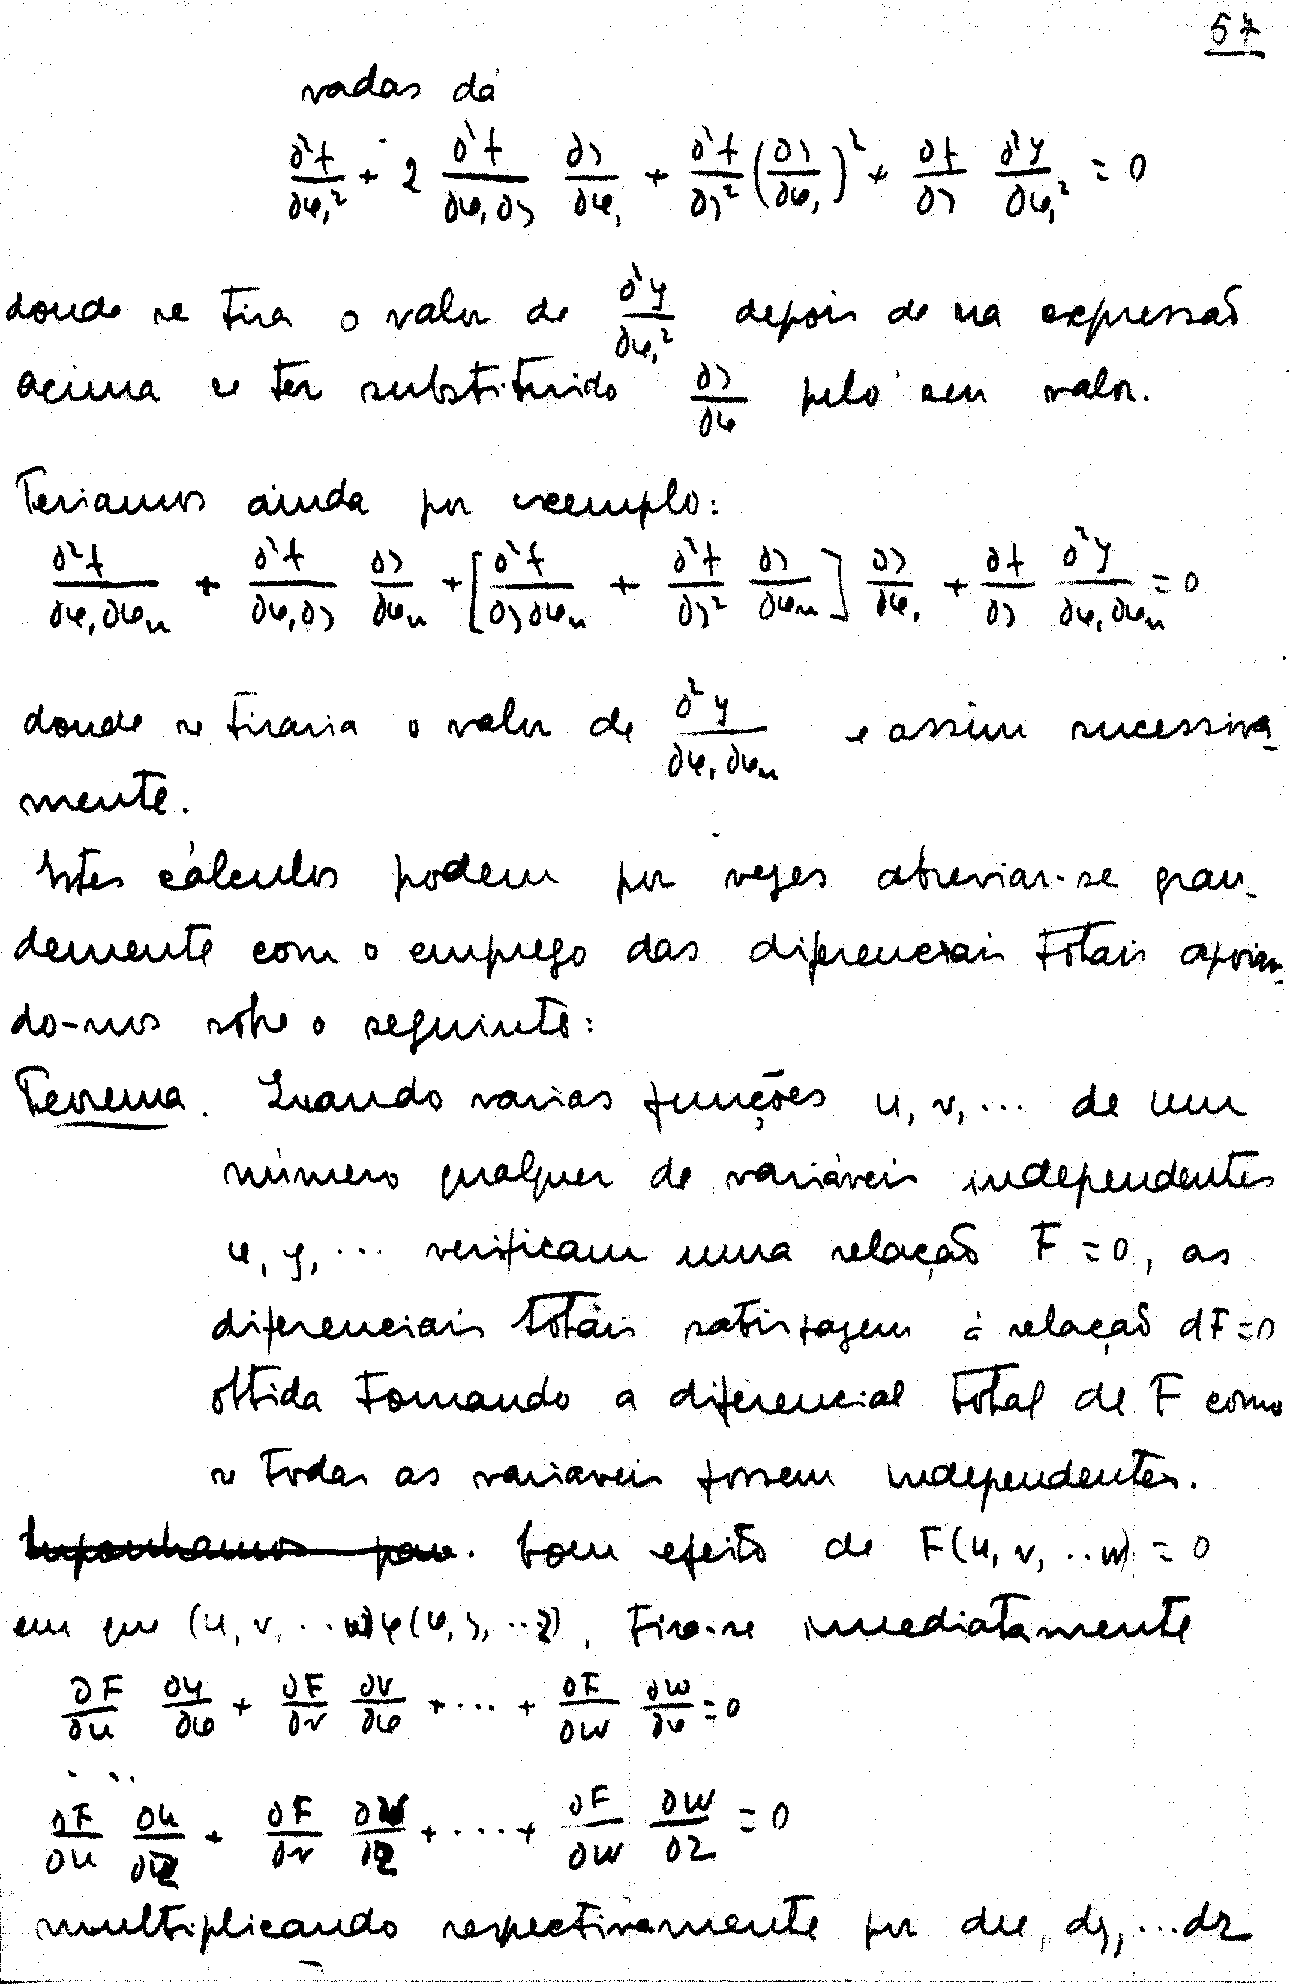 57
vadas dá
∂²f/∂x₁² + 2 ∂²f/∂x₁∂y ∂y/∂x₁ + ∂²f/∂y² (∂y/∂x₁)² + ∂f/∂y ∂²y/∂x₁² = 0
donde se tira o valor de ∂²y/∂x₁² depois de na expressão
acima se ter substituido ∂y/∂x pelo seu valor.
Teriamos ainda por exemplo:
∂²f/∂x₁∂xₙ + ∂²f/∂x₁∂y ∂y/∂xₙ + [∂²f/∂y∂xₙ + ∂²f/∂y² ∂y/∂xₙ] ∂y/∂x₁ + ∂f/∂y ∂²y/∂x₁∂xₙ = 0
donde se tiraria o valor de ∂²y/∂x₁∂xₙ e assim sucessiva-
mente.
Estes cálculos podem por vezes abreviar-se gran-
demente com o emprego das diferenciais totais apoian-
do-nos sobre o seguinte:
Teorema. Quando varias funções u, v, ... de um
número qualquer de variáveis independentes
x, y, ... verificam uma relação F = 0, as
diferenciais totais satisfazem à relação dF = 0
obtida tomando a diferencial total de F como
se todas as variaveis fossem independentes.
Suponhamos para. Com efeito de F(u, v, ..w) = 0
em que (u, v, ..w)φ(x, y, ..z), tira-se imediatamente
∂F/∂u ∂u/∂x + ∂F/∂v ∂v/∂x + ... + ∂F/∂w ∂w/∂x = 0
. . . .
∂F/∂u ∂u/∂z + ∂F/∂v ∂v/∂z + ... + ∂F/∂w ∂w/∂z = 0
multiplicando respectivamente por dx, dy, ... dz